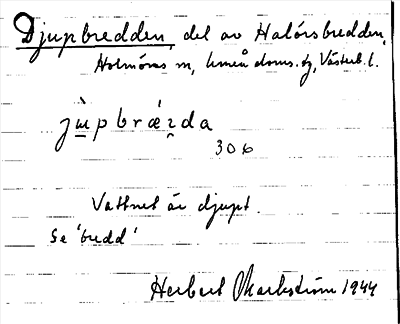 Djupbredden, del av Halörsbredden,
Holmöns sn, Umeå doms. tg, Västerb. l.
jùpbrǽɀda
306
Vattnet är djupt.
Se 'bredd'
Herbert Markström 1944